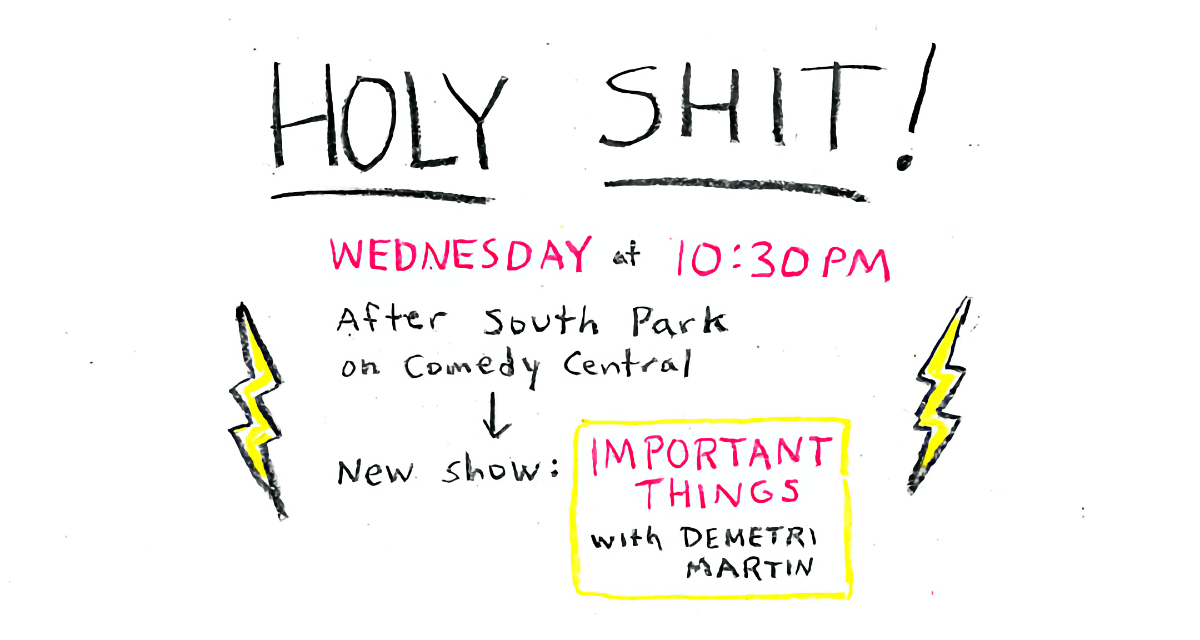 HOLY SHIT!
WEDNESDAY at 10:30 PM
After South Park
on Comedy Central
New show:
IMPORTANT
THINGS
with DEMETRI
MARTIN